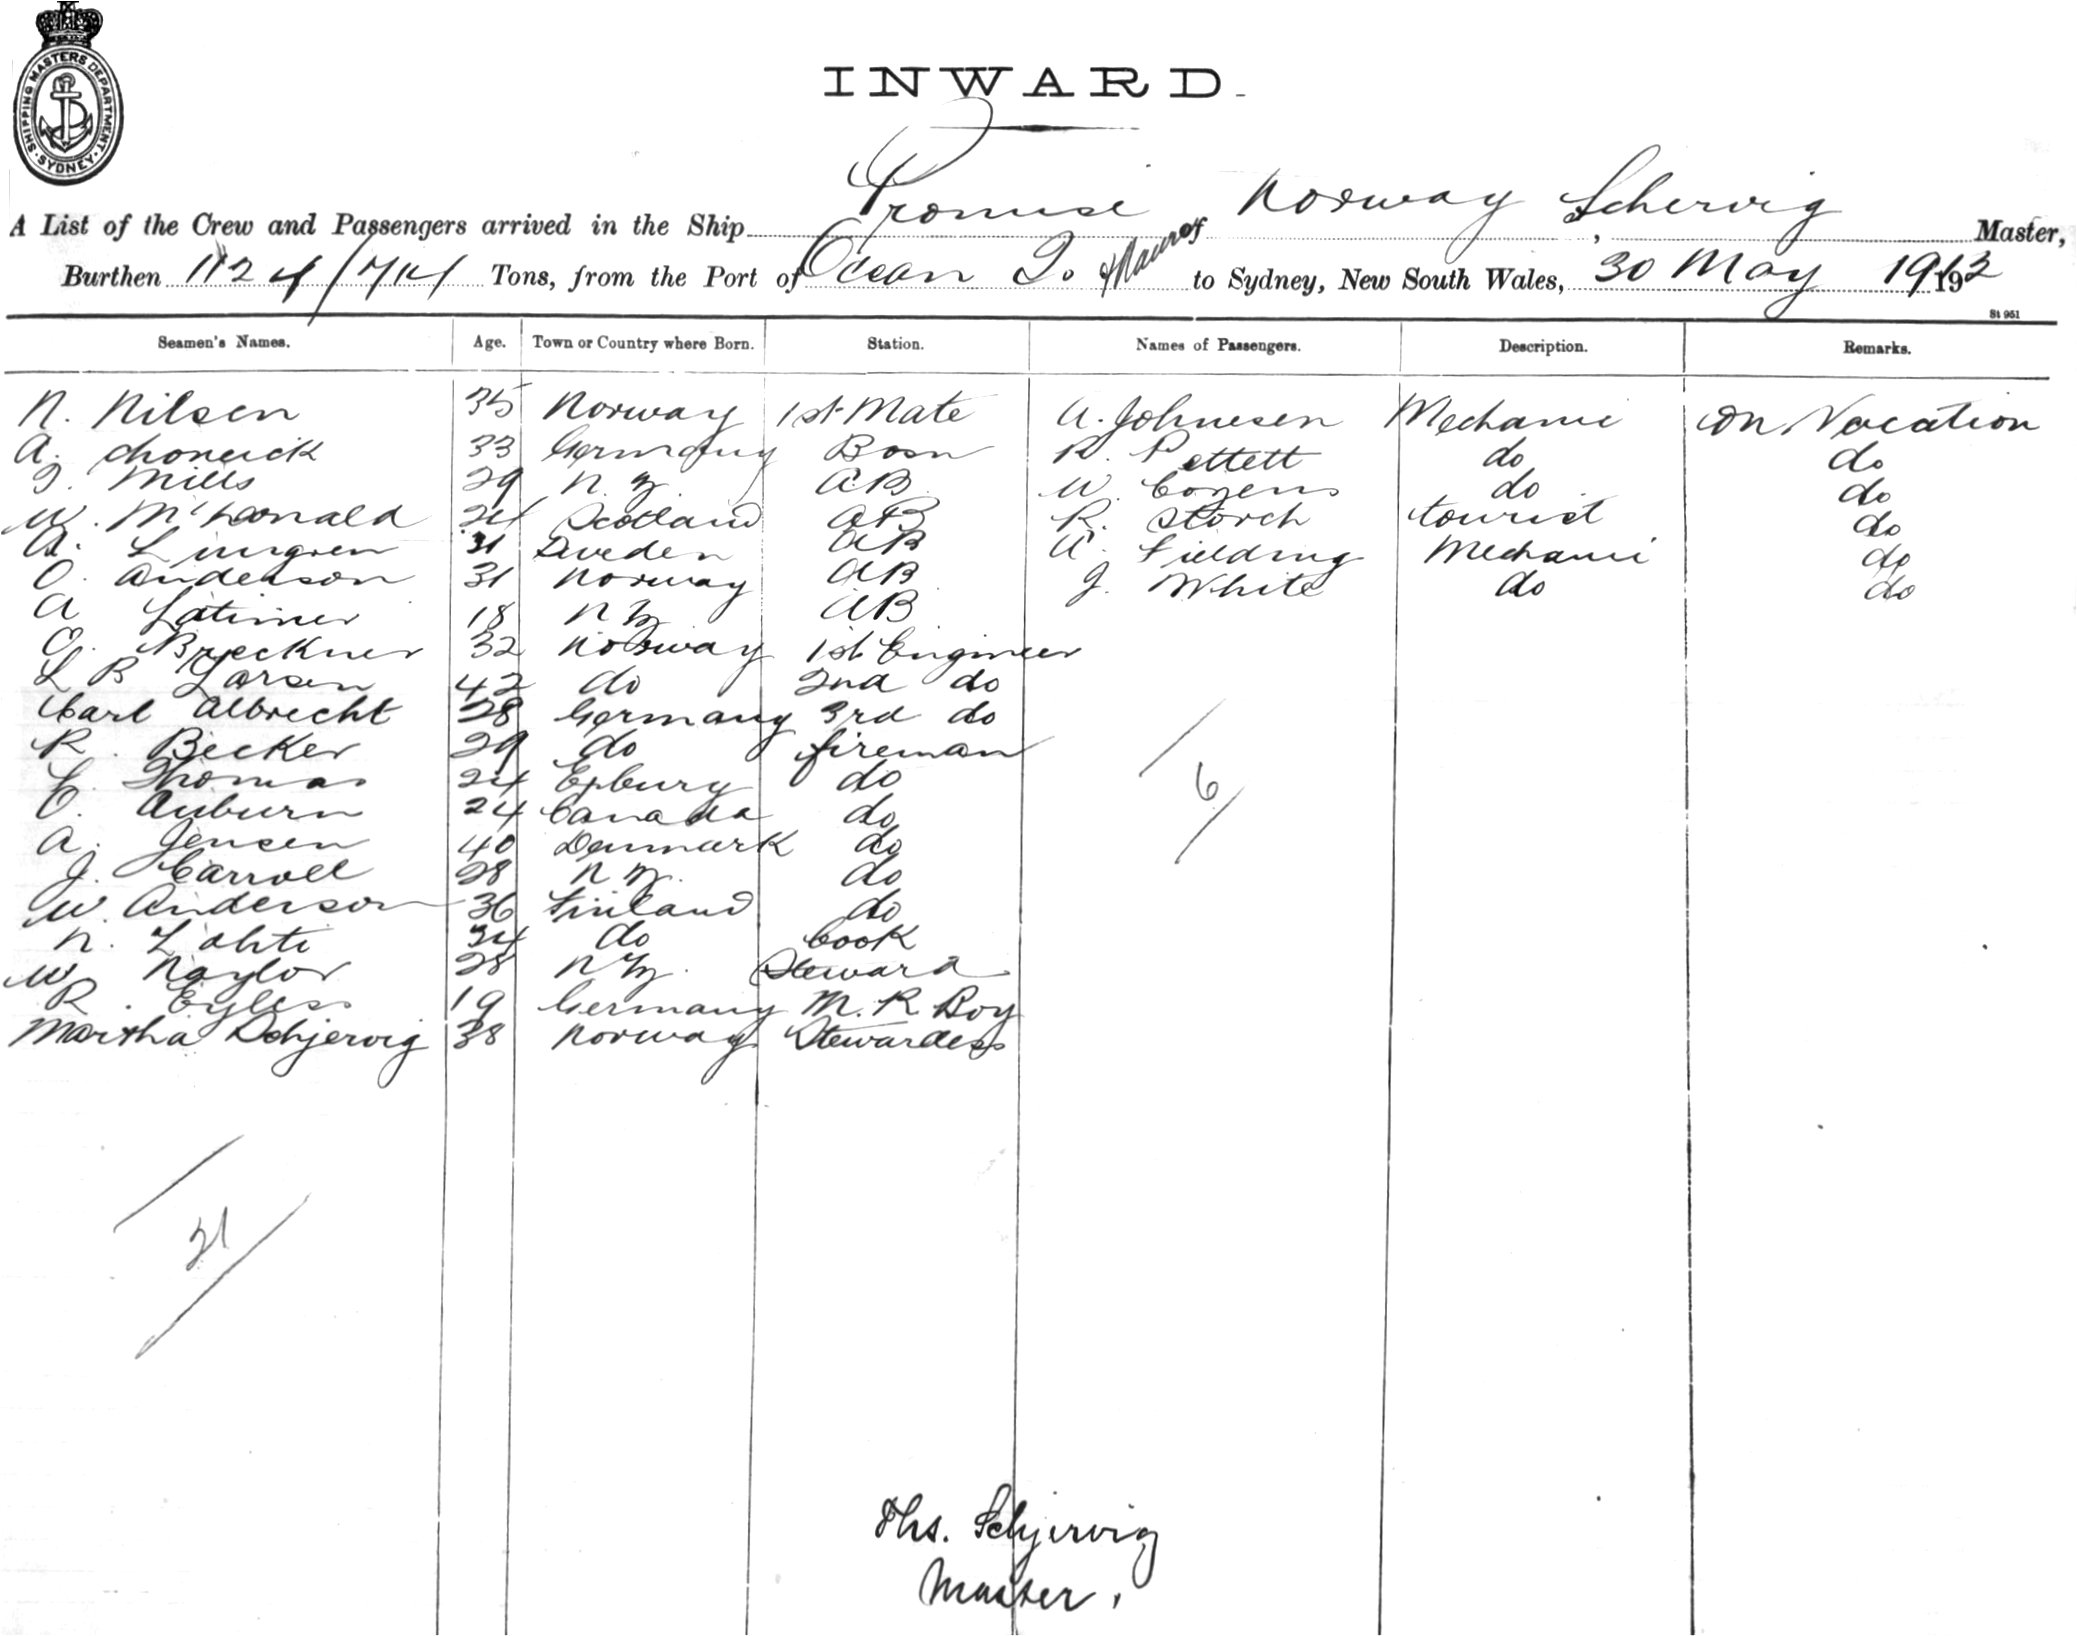 SHIPPING MASTERS DEPARTMENT. SYDNEY
INWARD.
A List of the Crew and Passengers arrived in the Ship Promise of Norway, Schervig Master,
Burthen 1124/714 Tons, from the Port of Ocean Is. & Nauru to Sydney, New South Wales, 30 May 1913
St 951
Seamen's Names. Age. Town or Country where Born. Station. Names of Passengers. Description. Remarks.
N. Nilsen 35 Norway 1st Mate A. Johnesen Mechanic on Vacation
A. 33 Germany Bosn R. Pettett do do
Mills 29 N.Z. AB W. Cozens do do
W. McDonald 24 Scotland AB R. Storch tourist do
A. Lingren 31 Sweden AB A. Fielding Mechanic do
O. Anderson 31 Norway AB J. White do do
A Latimer 18 NZ AB
Breckner 32 Norway 1st Engineer
L B Larsen 42 do 2nd do
Carl Albrecht 28 Germany 3rd do
R. Becker 29 do fireman
C. Thomas 24 do
Auburn 24 Canada do
A. Jensen 40 Denmark do
J. Carroll 28 NZ. do
W. Anderson 36 Finland do
N. Lahti 34 do Cook
W. Naylor 28 NZ. Steward
R. 19 Germany M. R. Boy
Martha Schjervig 38 Norway Stewardess
6
21
Ths. Schjervig
Master.